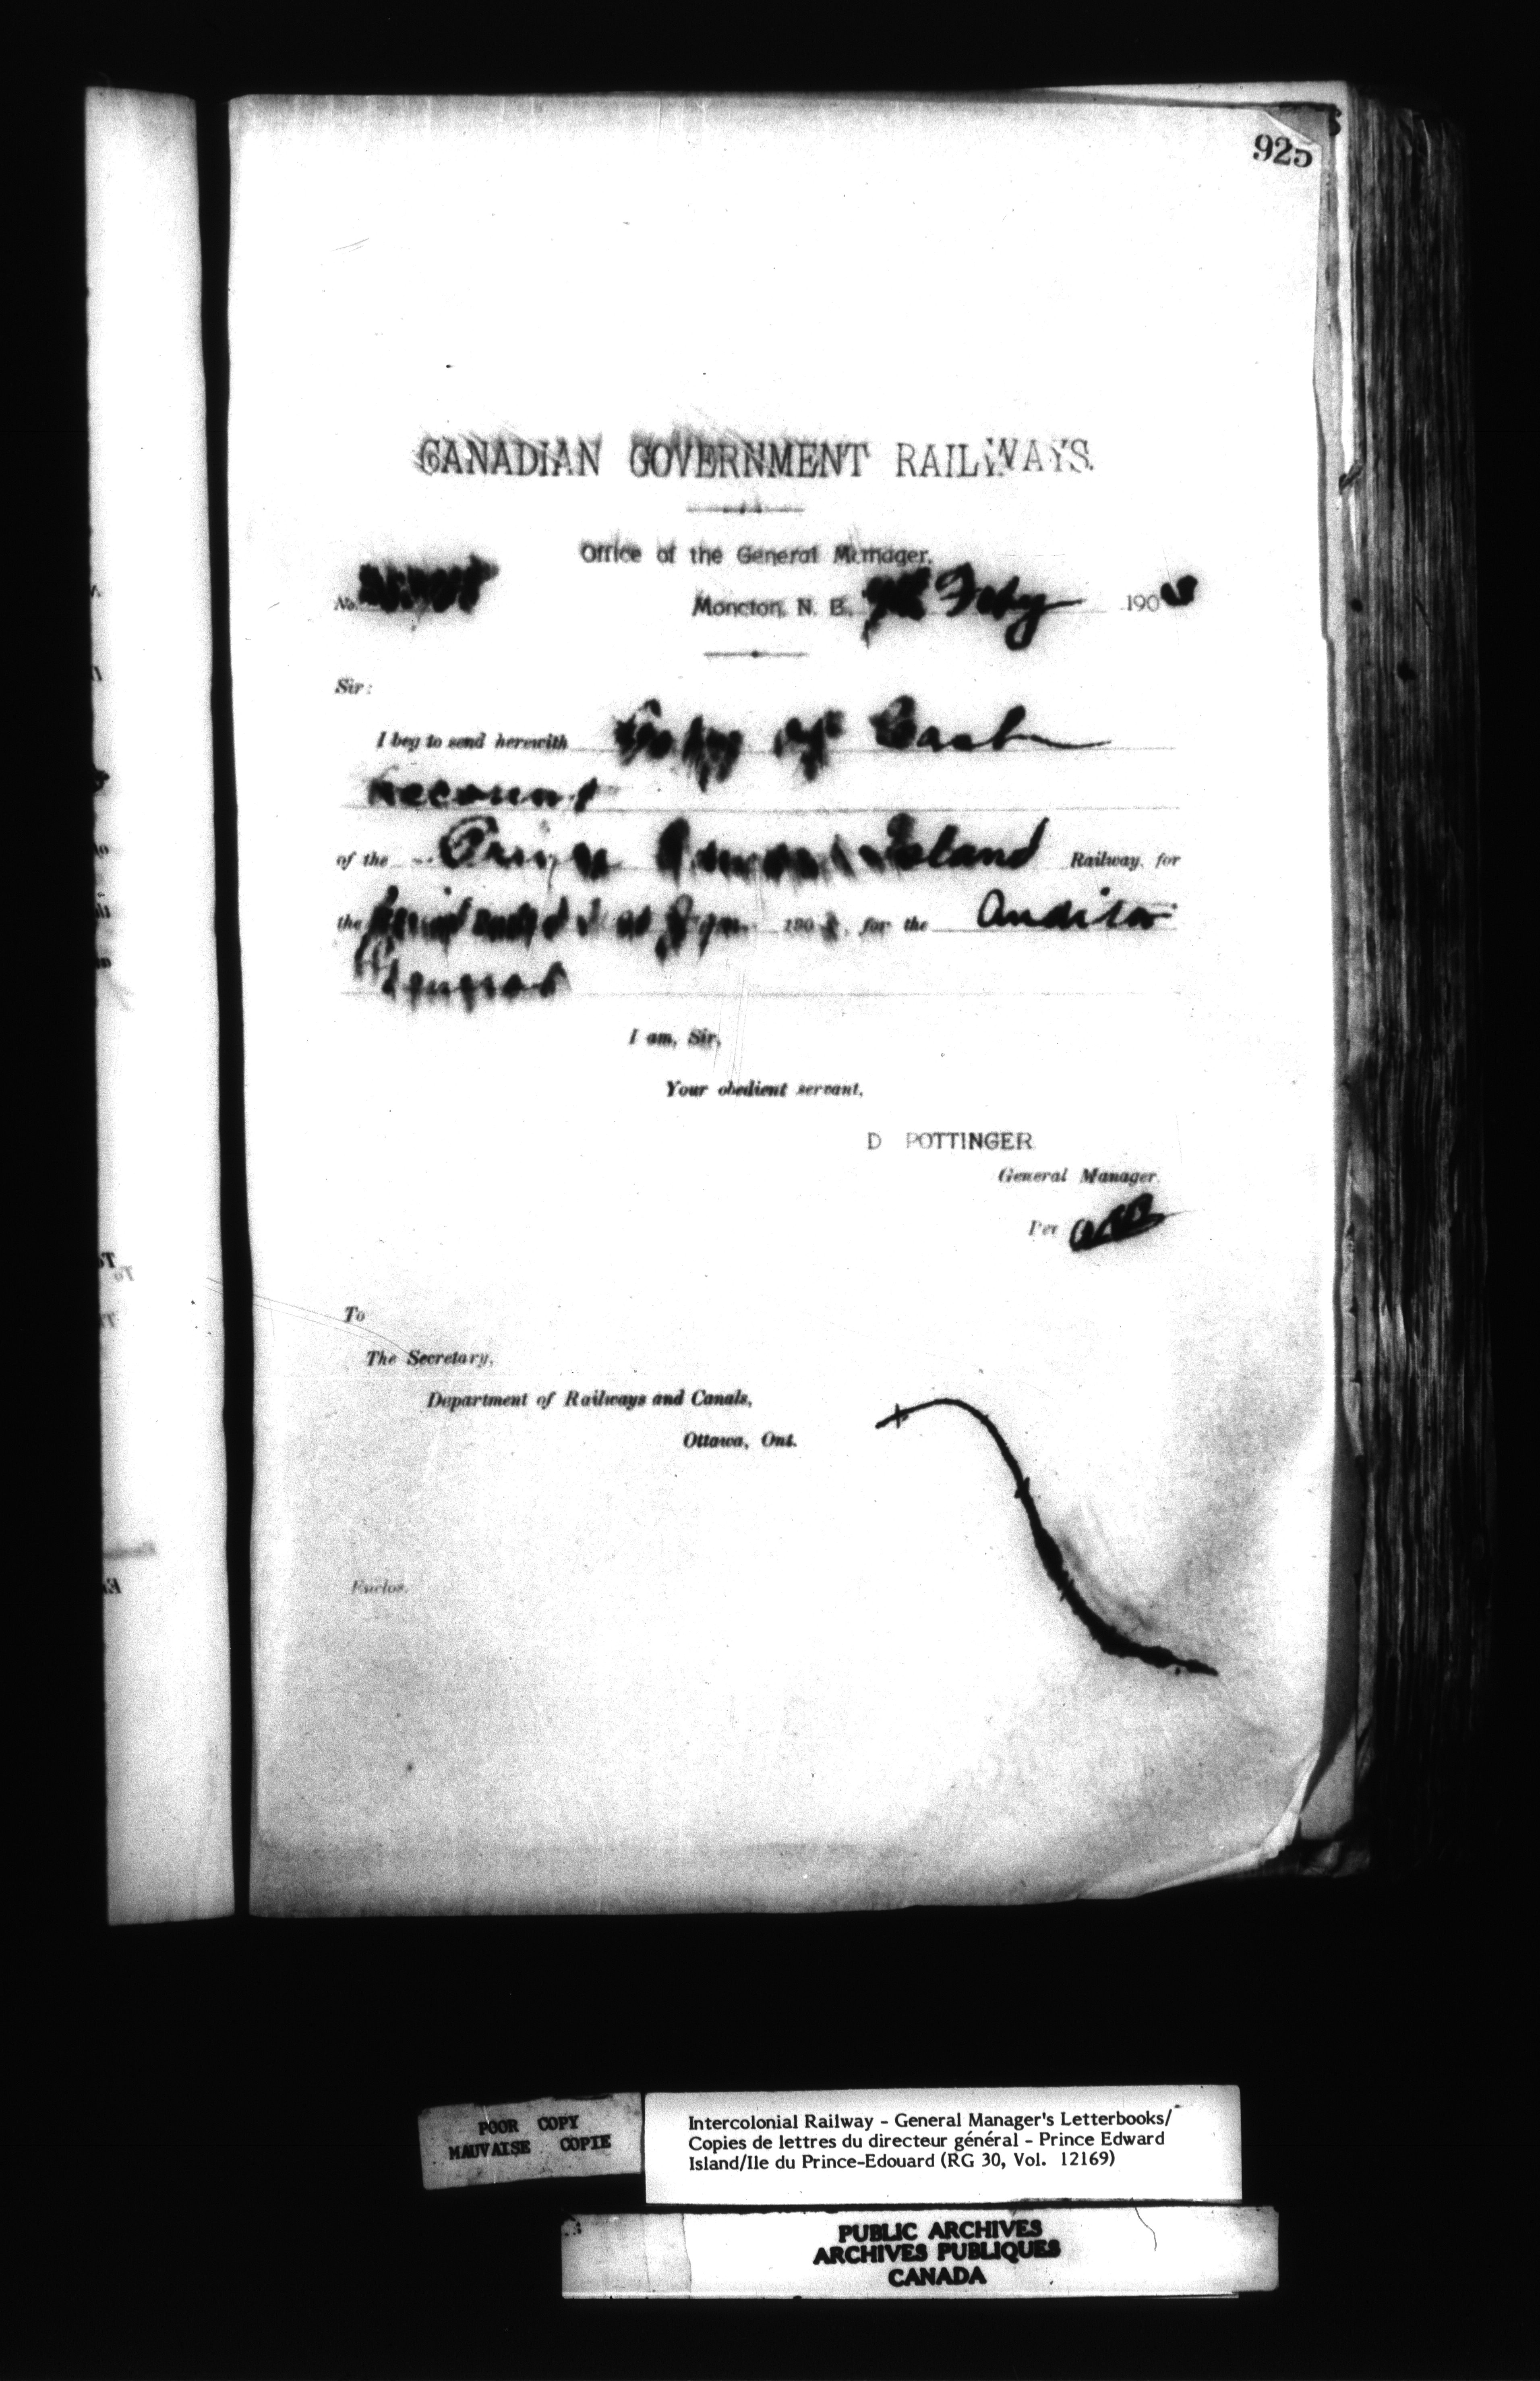 925
CANADIAN GOVERNMENT RAILWAYS.
Office of the General Manager,
No.
Moncton, N. B., Feby 190
Sir:
I beg to send herewith Copy of Cash
Account
of the Prince Edward Island Railway, for
the 190 , for the Auditor
General
I am, Sir,
Your obedient servant,
D POTTINGER
General Manager.
Per
To
The Secretary,
Department of Railways and Canals,
Ottawa, Ont.
Enclos.
POOR COPY
MAUVAISE COPIE
Intercolonial Railway - General Manager's Letterbooks/
Copies de lettres du directeur général - Prince Edward
Island/Ile du Prince-Edouard (RG 30, Vol. 12169)
PUBLIC ARCHIVES
ARCHIVES PUBLIQUES
CANADA